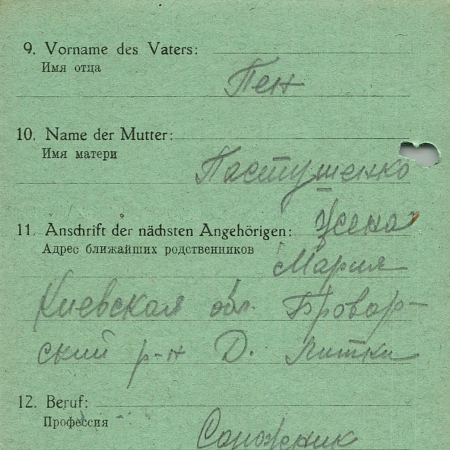 9. Vorname des Vaters:
Имя отца
Пен
10. Name der Mutter:
Имя матери
Пастушенко
11. Anschrift der nächsten Angehörigen: жена
Адрес ближайших родственников
Мария
Киевская обл. Бровар-
ский р-н Д. Литки
12. Beruf:
Профессия
Сапожник